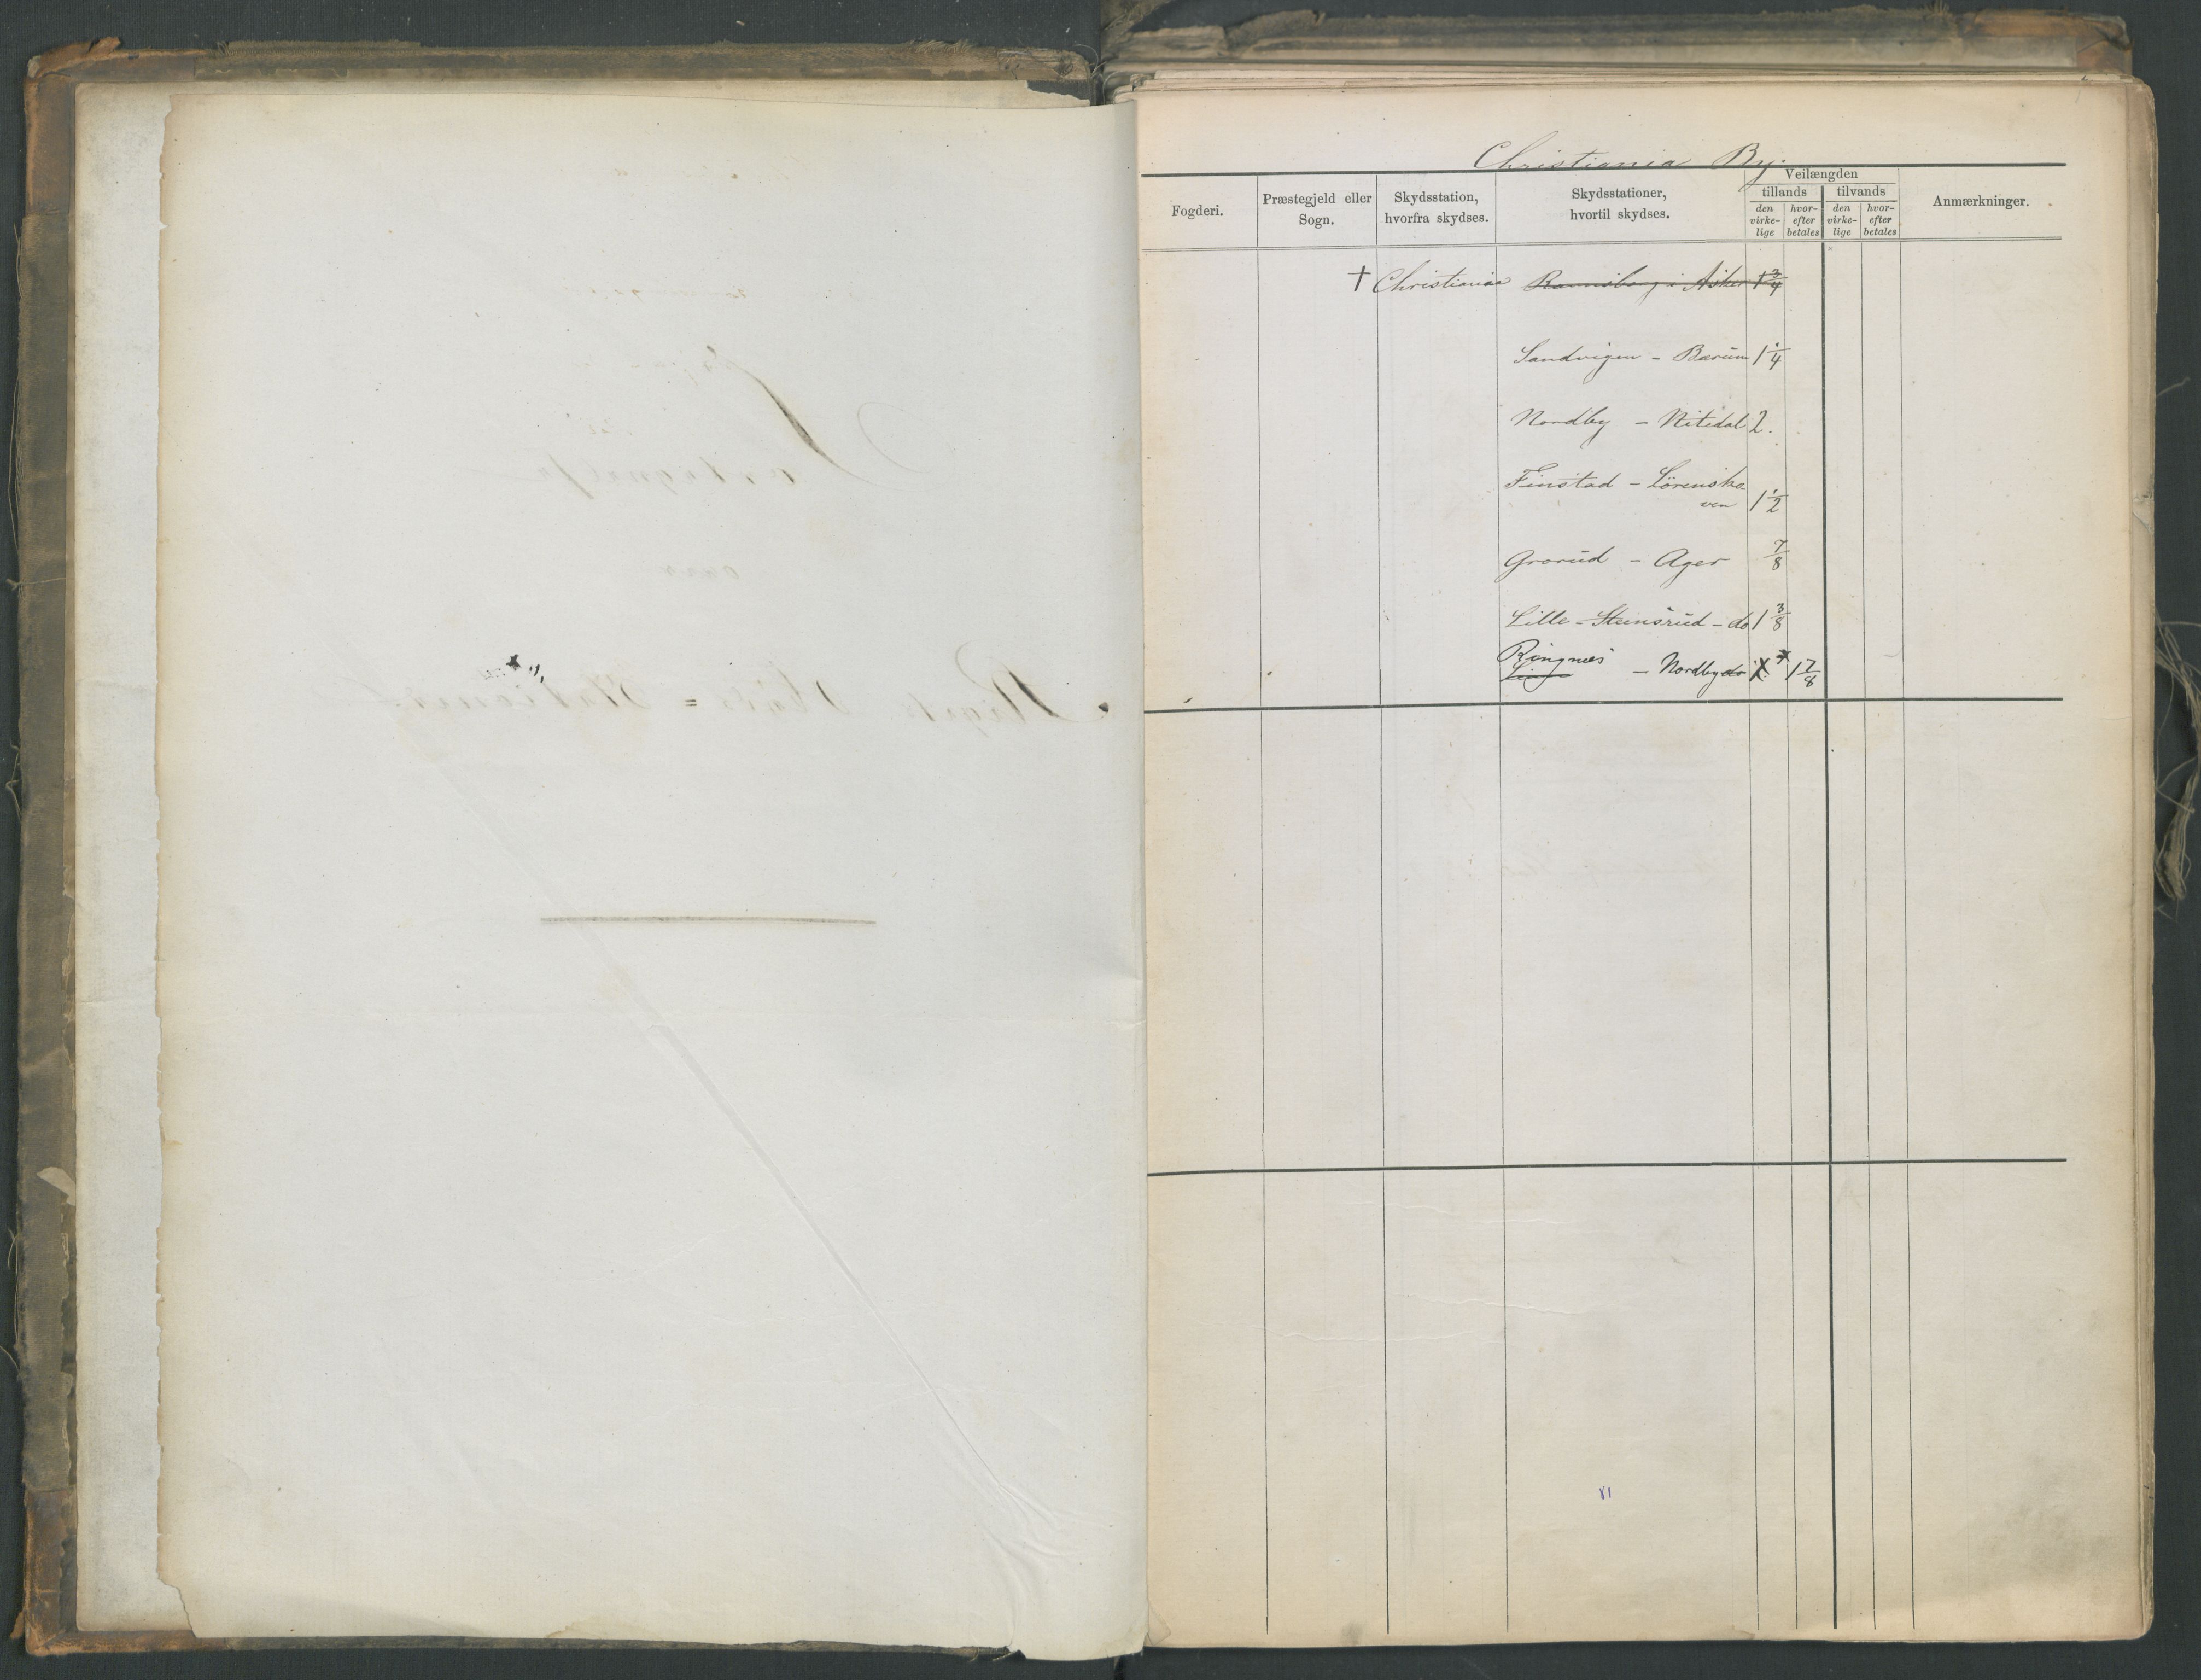 Christiania By.
Fogderi.
Præstegjeld eller
Sogn.
Skydsstation,
hvorfra skydses.
Skydsstationer,
hvortil skydses.
Veilængden
tillands
tilvands
den
virke-
lige
hvor-
efter
betales
den
virke-
lige
hvor-
efter
betales
Anmærkninger.
† Christiania Ravnsborg i Asker 1 3/4
Sandvigen - Bærum 1 1/4
Nordby - Nitedal 2.
Finstad - Lørensko-
ven 1 1/2
Grorud - Ager 7/8
Lille-Stensrud - do 1 3/8
Ringnæs
- Nordby do 1 7/8
81